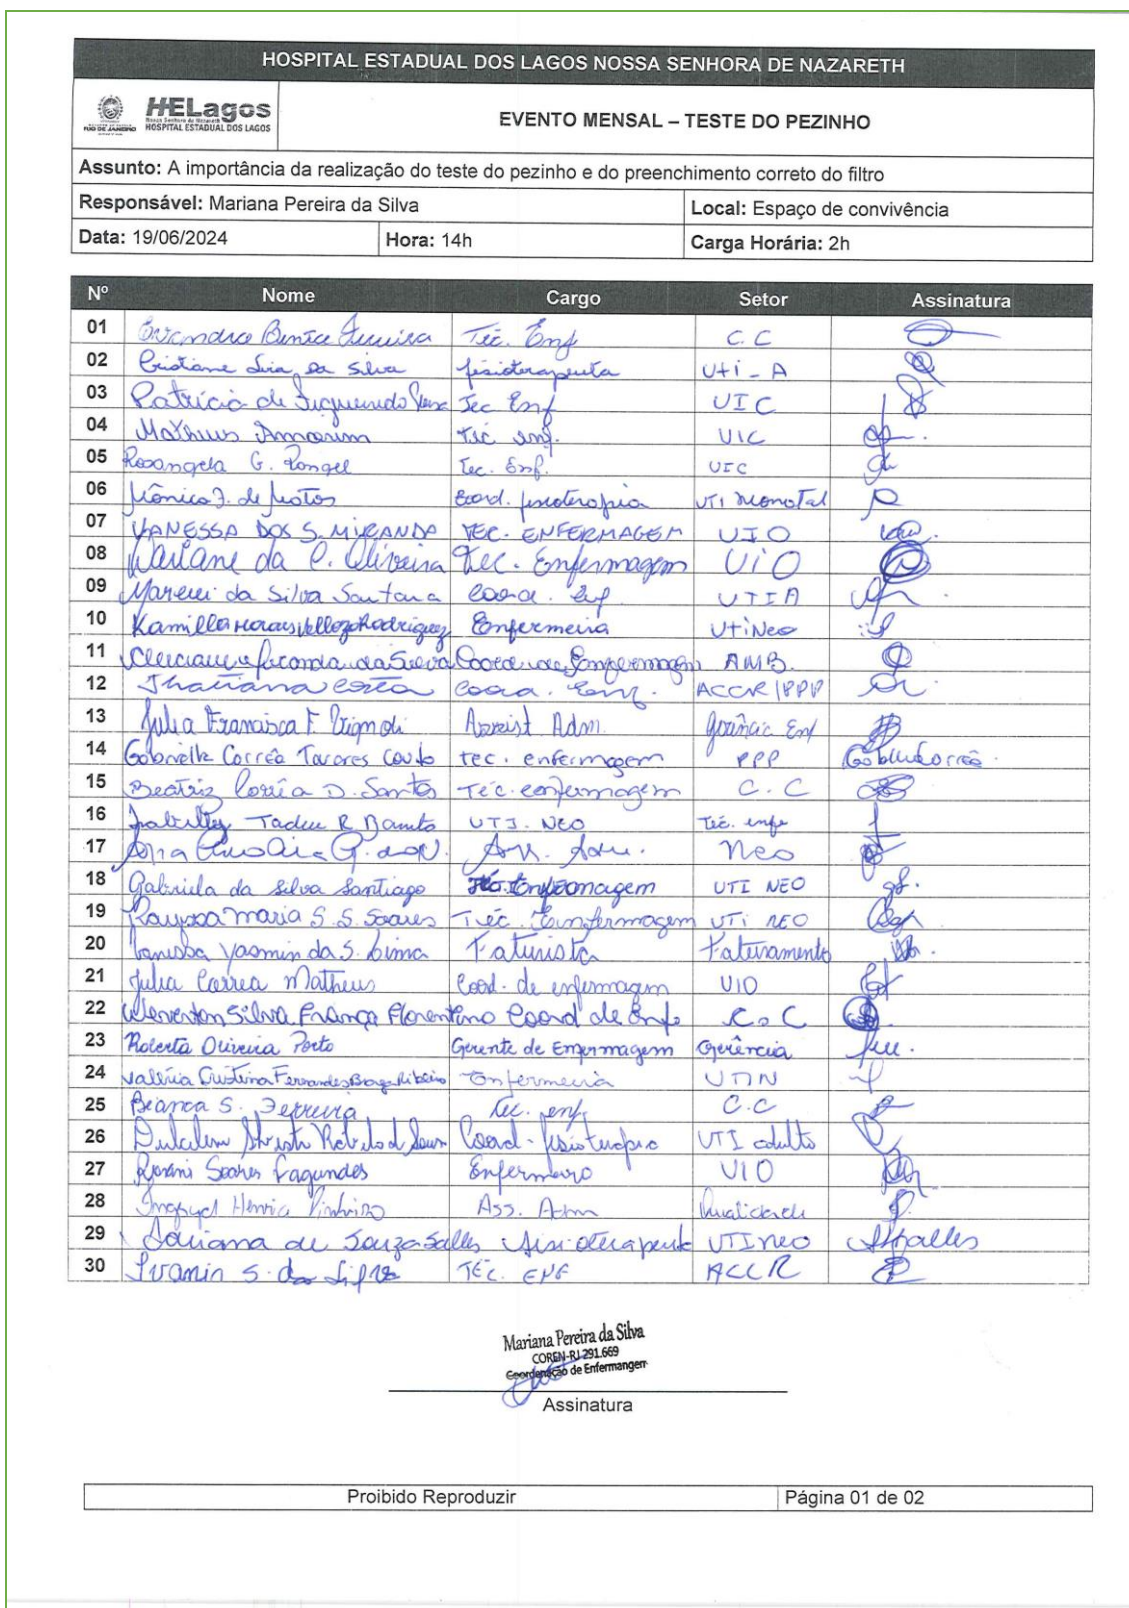 HOSPITAL ESTADUAL DOS LAGOS NOSSA SENHORA DE NAZARETH
HELagos
HOSPITAL ESTADUAL DOS LAGOS
EVENTO MENSAL – TESTE DO PEZINHO
Assunto: A importância da realização do teste do pezinho e do preenchimento correto do filtro
Responsável: Mariana Pereira da Silva Local: Espaço de convivência
Data: 19/06/2024 Hora: 14h Carga Horária: 2h
Nº Nome Cargo Setor Assinatura
01 Téc. Enf C.C
02 Cristiane Lira da Silva fisioterapeuta Uti-A
03 Patricia de Figueiredo Tec Enf UIC
04 Matheus Amorim Tec enf. UIC
05 Rosangela G. Rangel Tec. Enf. UIC
06 Mônica J. de Matos Coord. fisioterapia UTI neonatal
07 VANESSA DOS S. MIRANDA TEC. ENFERMAGEM UIO
08 Oliveira Tec. Enfermagem UiO
09 da Silva Santana Coord. Enf UTIA
10 Kamilla Rodriguez Enfermeira UtiNeo
11 da Silva Coord. de Enfermagem AMB.
12 Thatiana Costa Coord. Enf. ACCR/PPP
13 Julia Francisca F. Assist Adm. Enf
14 Gabrielle Corrêa Tavares Couto tec. enfermagem PPP
15 Beatriz Corrêa D. Santos Téc. enfermagem C.C
16 Tadeu R UTI. NEO Téc. enfe
17 Ana Neo
18 Gabriela da Silva Santiago Enfermagem UTI NEO
19 Rayssa Maria S. S. Soares Téc. Enfermagem UTi NEO
20 Vanessa Yasmin da S. Lima Faturista Faturamento
21 Julia Correa Matheus Coord. de enfermagem UIO
22 Weverton Silva França Florentino Coord de Enfe C.C
23 Roberta Oliveira Porto Gerente de Enfermagem Gerência
24 Valéria Cristina Fernandes Braga Ribeiro Enfermeira UTIN
25 Bianca S. Ferreira Tec. enf C.C
26 Coord. fisioterapia UTI adulto
27 Soares Fagundes Enfermeiro UIO
28 Pinheiro Ass. Adm Qualidade
29 de Souza Salles fisioterapeuta UTI neo
30 S. da Silva TÉC. ENF ACCR
Mariana Pereira da Silva
COREN-RJ 291.669
Coordenação de Enfermangem
Assinatura
Proibido Reproduzir Página 01 de 02